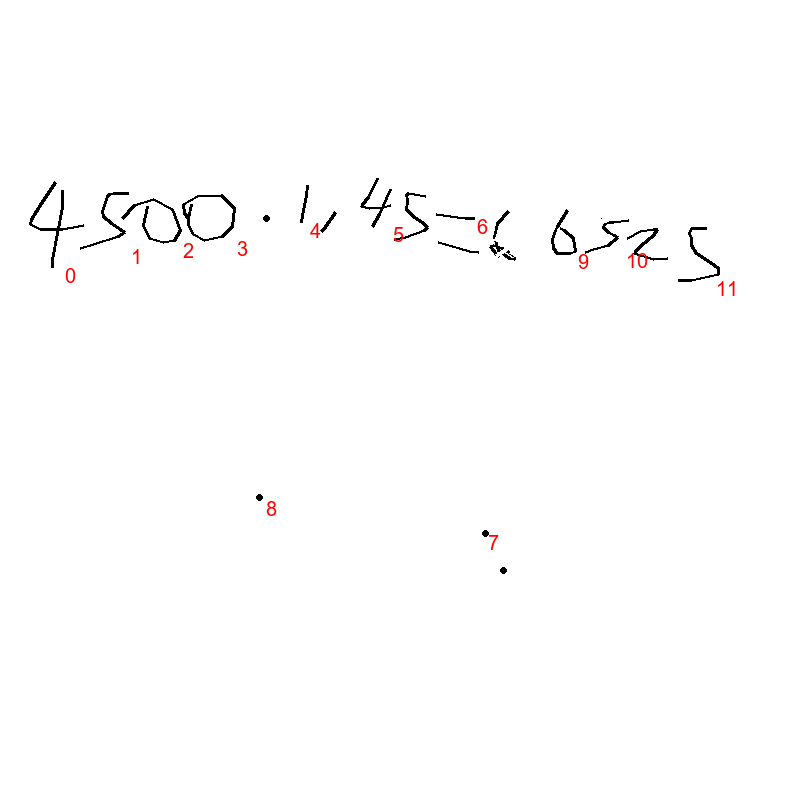 4500 · 1,45 = 6525
0 1 2 3 4 5 6 9 10 11
8
7